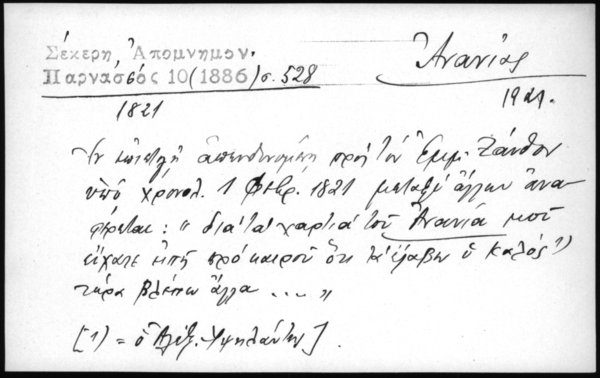 Σέκερη, Ἀπομνημον.
Παρνασσός 10 (1886) σ. 528
Ἀνανίας
1821
1921.
Ἐν ἐπιστολῇ ἀπευθυνομένῃ πρός τόν Ἐμμ. Ξάνθον
ὑπό χρονολ. 1 Φεβρ. 1821 μεταξύ ἄλλων ἀνα-
φέρεται: "διά τά χαρτιά τοῦ Ἀνανία μοῦ
εἴχατε εἰπῆ πρό καιροῦ ὅτι τά ἔλαβεν ὁ Καλός 1)
τώρα βλέπω ἄλλα ...."
[1) = ὁ Ἀλέξ. Ὑψηλάντης].